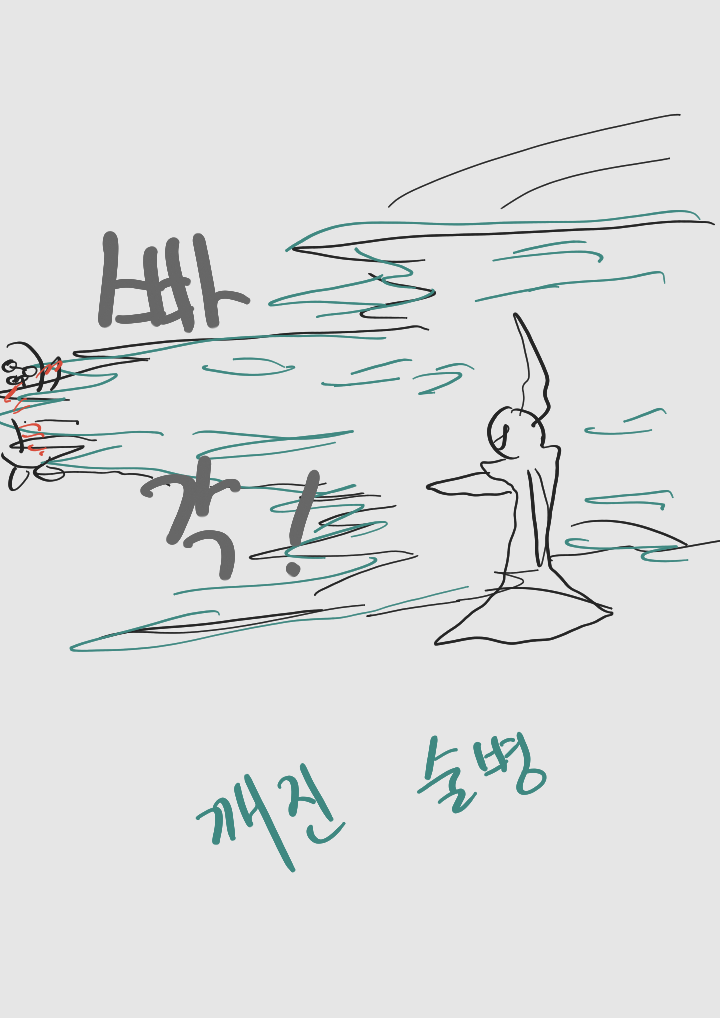 빠
각!
깨진 술병